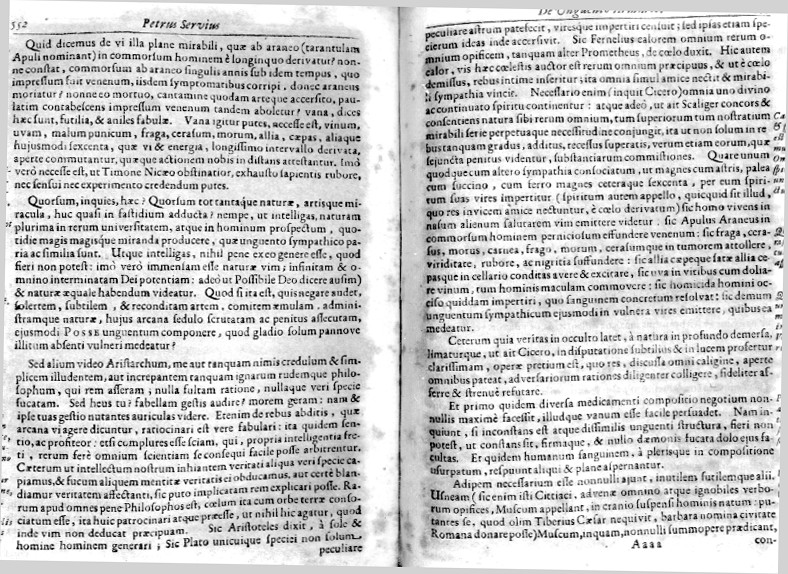 552 Petrus Servius
Quid dicemus de vi illa plane mirabili, quæ ab araneo (tarantulam
Apuli nominant) in commorsum hominem è longinquo derivatur? non-
ne constat, commorsum ab araneo singulis annis sub idem tempus, quo
impressum fuit venenum, iisdem symptomatibus corripi, donec araneus
moriatur? nonne eo mortuo, cantamine quodam arteque accersito, pau-
latim contabescens impressum venenum tandem aboletur? vana, dices
hæc sunt, futilia, & aniles fabulæ. Vana igitur putes, necesse est, vinum,
uvam, malum punicum, fraga, cerasum, morum, allia, cæpas, aliaque
hujusmodi sexcenta, quæ vi & energia, longissimo intervallo derivata,
aperte commutantur, quæque actionem nobis in distans attestantur. Imò
verò necesse est, ut Timone Nicæo obstinatior, exhausto sapientis rubore,
nec sensui nec experimento credendum putes.
Quorsum, inquies, hæc? Quorsum tot tantaque naturæ, artisque mi-
racula, huc quasi in fastidium adducta? nempe, ut intelligas, naturam
plurima in rerum universitatem, atque in hominum prospectum, quo-
tidie magis magisque miranda producere, quæ unguento sympathico pa-
ria ac similia sunt. Utque intelligas, nihil pene ex eo genere esse, quod
fieri non potest: imò verò immensam esse naturæ vim; infinitam & o-
mnino interminatam Dei potentiam: adeo ut Possibile Deo dicere ausim)
& naturæ æquale habendum videatur. Quod si ita est, quis negare audet,
solertem, subtilem, & reconditam artem, comitem æmulam, admini-
stramque naturæ, hujus arcana sedulo scrutatam ac penitus assecutam,
ejusmodi POSSE unguentum componere, quod gladio solum pannove
illitum absenti vulneri medeatur?
Sed alium video Aristarchum, me aut tanquam nimis credulum & sim-
plicem illudentem, aut increpantem tanquam ignarum rudemque philo-
sophum, qui rem asseram; nulla fultam ratione, nullaque veri specie
fucatam. Sed heus tu? fabellam gestis audire? morem geram: nam &
ipse tuas gestio nutantes auriculas videre. Etenim de rebus abditis, quæ
arcana vi agere dicuntur, ratiocinari est vere fabulari: ita quidem sen-
tio, ac profiteor: etsi complures esse sciam, qui, propria intelligentia fre-
ti, rerum ferè omnium scientiam se consequi facile posse arbitrentur.
Cæterum ut intellectum nostrum inhiantem veritati aliqua veri specie ca-
piamus, & fucum aliquem mentitæ veritatis ei obducamus, aut certè blan-
diamur veritatem affectanti, sic puto implicatam rem explicari posse. Ra-
rum apud omnes pene Philosophos est, cœlum ita cum orbe terræ conso-
ciatum esse, ita huic patrocinari atque præesse, ut nihil hic agatur, quod
inde vim non deducat præcipuam. Sic Aristoteles dixit, à sole &
homine hominem generari; Sic Plato unicuique speciei non solum
peculiare
De Unguento
peculiare astrum patefecit, viresque impertiri censuit; sed ipsas etiam spe-
cierum ideas inde accersivit. Sic Fernelius calorem omnium rerum o-
mnium opificem, tanquam alter Prometheus, de cœlo duxit. Hic autem
calor, vis hæc cœlestis auctor est rerum omnium præcipuus, & ut è cœlo
demissus, rebus intime inseritur; ita omnia simul amice nectit & mirabi-
li sympathia vincit. Necessario enim (inquit Cicero) omnia uno divino
ac continuato spiritu continentur: atque adeò, ut ait Scaliger concors &
consentiens natura sibi rerum omnium, tum superiorum tum nostratium
mirabili serie perpetuaque necessitudine conjungit, ita ut non solum in re
bus tanquam gradus, additus, recessus superatis, verum etiam eorum, quæ
sejuncta penitus videntur, substantiarum commistiones. Quare unum
quodque cum altero sympathia consociatum, ut magnes cum astris, palea
cum succino, cum ferro magnes ceteraque sexcenta, per eum spiri-
tum suas vires impertitur (spiritum autem appello, quicquid sit illud,
quo res invicem amice nectuntur, è cœlo derivatum) sic homo vivens in
nasum alienum salutarem vim emittere videtur: sic Apulus Araneus in
commorsum hominem perniciosum effundere venenum: sic fraga, cera-
sus, morus, carica, frago, morum, cerasumque in tumorem attollere,
viriditate, rubore, ac nigritia suffundere: sic allia cæpeque satæ allia ce-
pasque in cellario conditas avere & excitare, sic uva in vitibus cum dolia-
re vinum, tum hominis maculam commovere: sic homicida homini oc-
ciso quiddam impertiri, quo sanguinem concretum resolvat: sic demum
unguentum sympathicum ejusmodi in vulnera vires emittere, quibus ea
medeatur.
Ceterum quia veritas in occulto latet, à natura in profundo demersa,
limaturque, ut ait Cicero, in disputatione subtilius & in lucem profertur
clarissimam, operæ pretium est, quo res, discussa omni caligine, aperte
omnibus pateat, adversariorum rationes diligenter colligere, fideliter as-
serre & strenuè refutare.
Et primo quidem diversa medicamenti compositio negotium non-
nullis maximè facessit, illudque vanum esse facile persuadet. Nam in-
quiunt, si inconstans est atque dissimilis unguenti structura, fieri non
potest, ut constans sit, firmaque, & nullo dæmonis fucata dolo ejus fa-
cultas. Et quidem humanum sanguinem, à plerisque in compositione
usurpatum, respuunt aliqui & plane aspernantur.
Adipem necessarium esse nonnulli ajunt, inutilem futilemque alii.
Usneam (sic enim isti Cittiaci, advenæ omnino atque ignobiles verbo-
rum opifices, Muscum appellant, in cranio suspensi hominis natum: pu-
tantes se, quod olim Tiberius Cæsar nequivit, barbara nomina civitate
Romana donare posse) Muscum, inquam, nonnulli summopere prædicant,
Aaaa con-